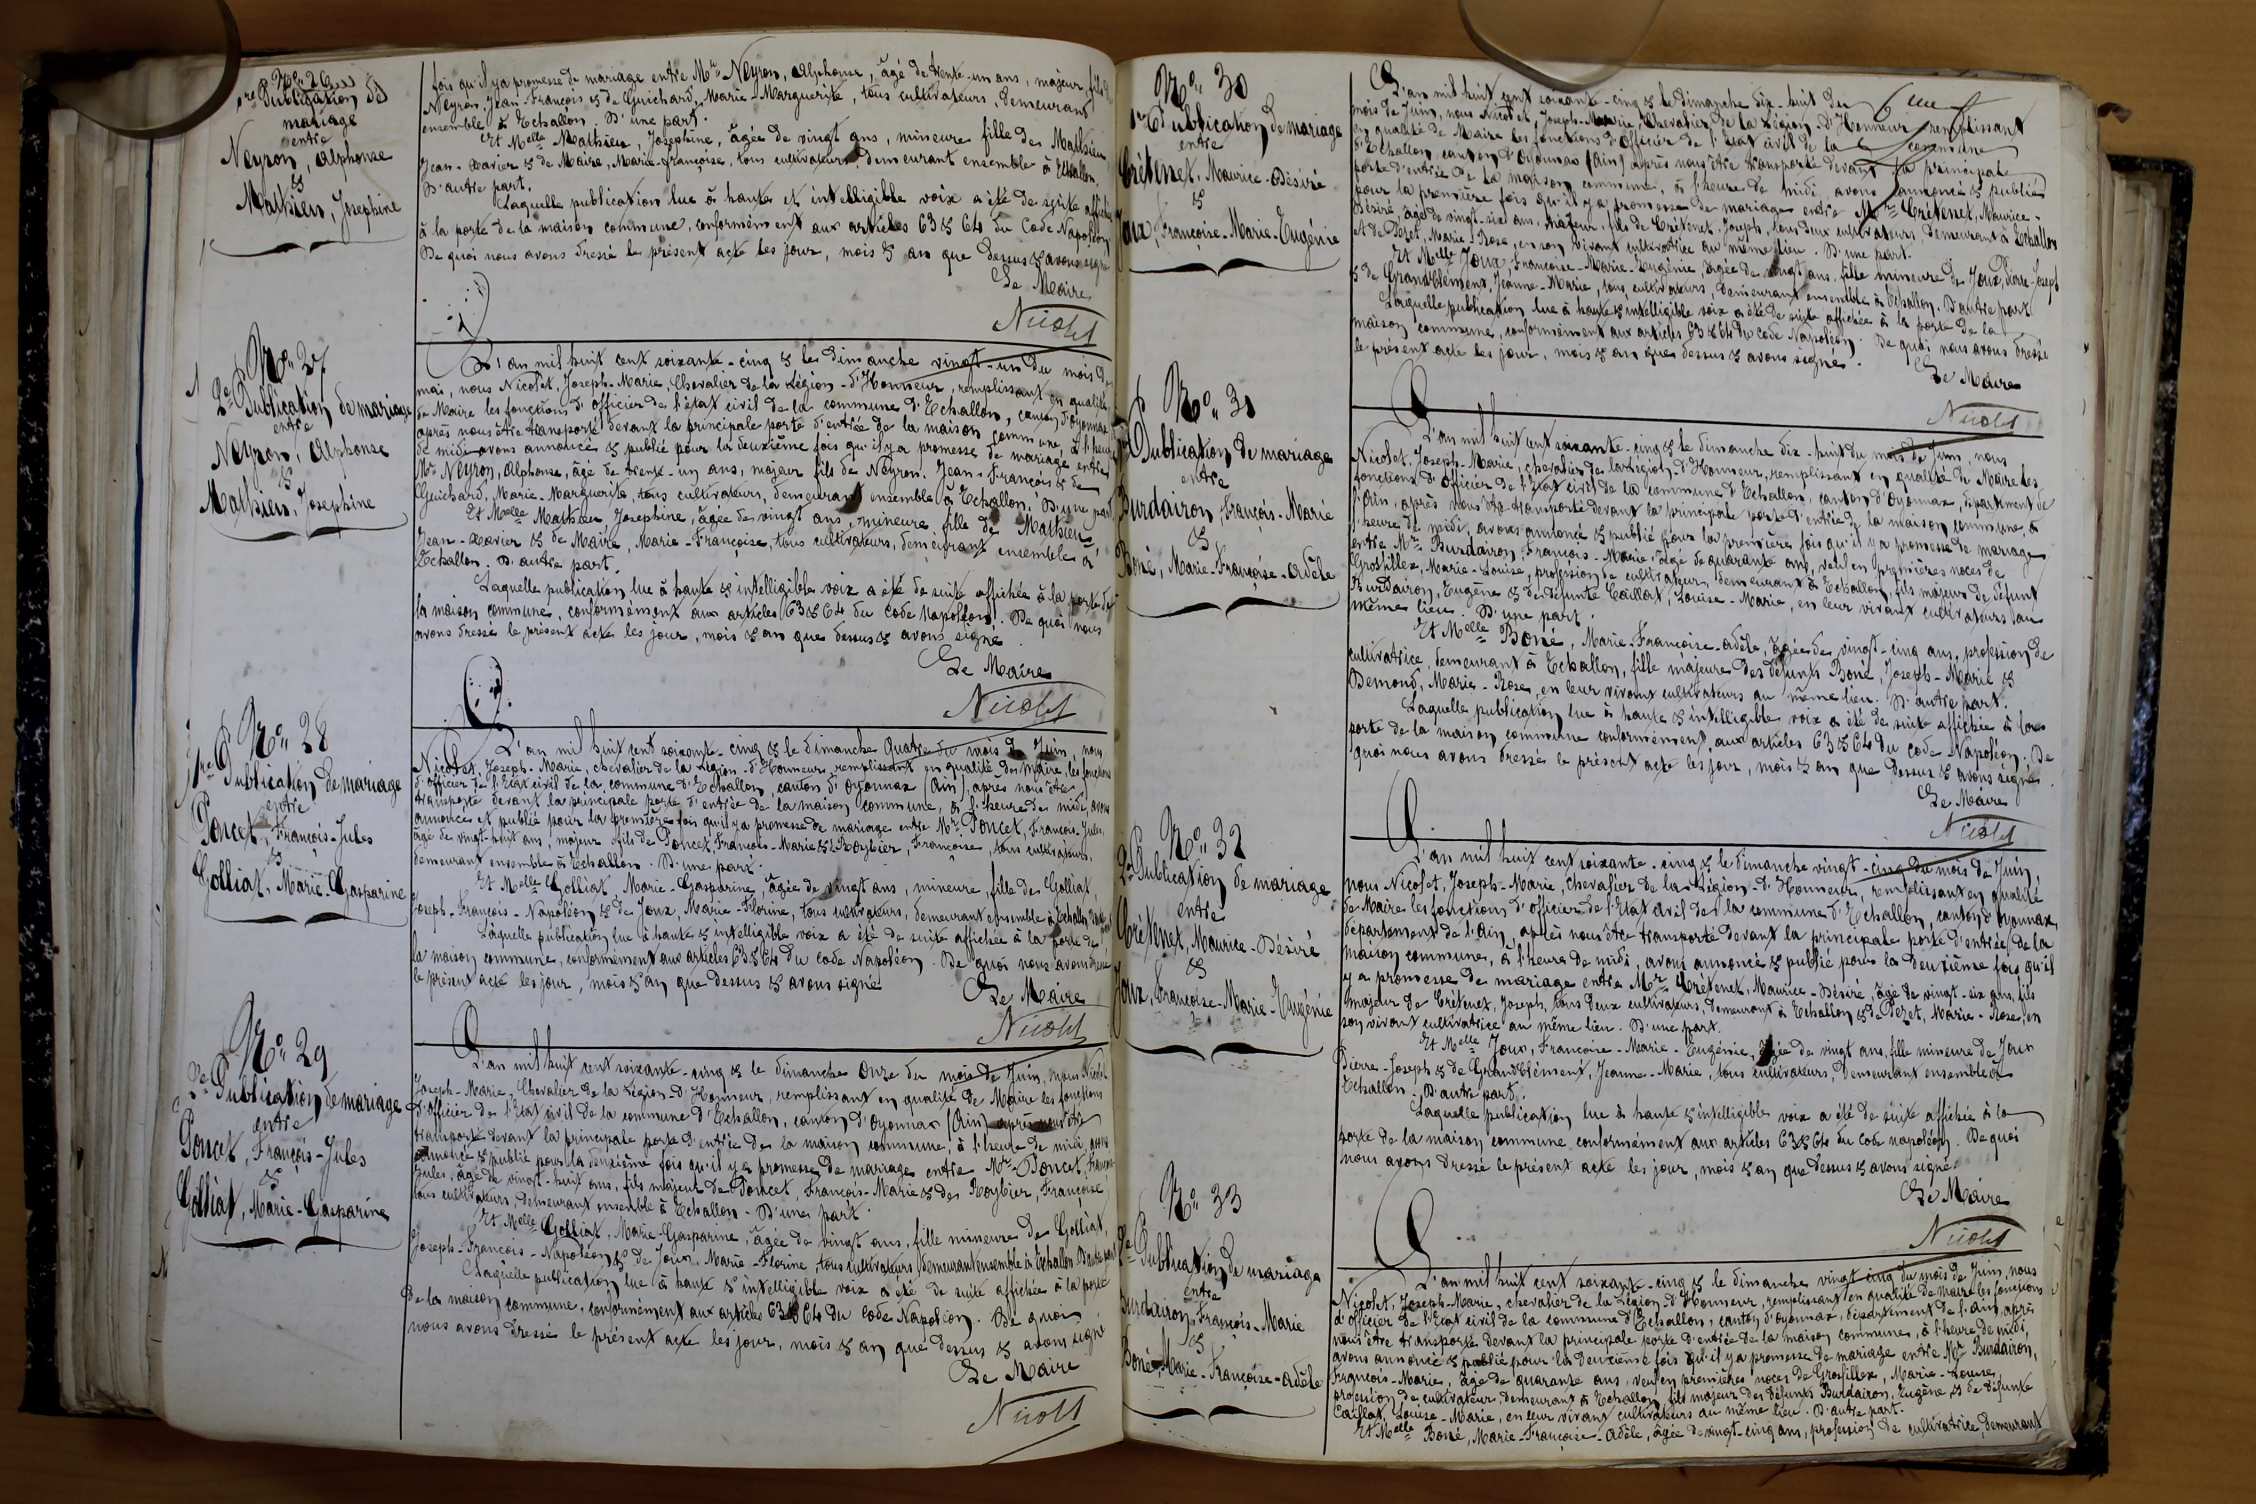 No. 26
1re Publication de
mariage
entre
Neyron, Alphonse
&
Mathieu, Josephine
fois qu'il y a promesse de mariage entre Mr. Neyron, Alphonse, âgé de trente-un ans, majeur, fils de
Neyron, Jean-François & de Guichard, Marie-Marguerite, tous cultivateurs, demeurant
ensemble à Echallon. D'une part.
Et Melle Mathieu, Josephine, âgée de vingt ans, mineure fille de Mathieu
Jean-Xavier & de Maire, Marie-françoise, tous cultivateurs, demeurant ensemble à Echallon.
D'autre part.
Laquelle publication lue à haute et intelligible voix a été de suite affichée
à la porte de la maison commune, conformément aux articles 63 & 64 du Code Napoléon
De quoi nous avons dressé le présent acte les jour, mois & an que dessus & avons signé
Le Maire
Nicolet
No. 27
2e Publication de mariage
entre
Neyron, Alphonse
&
Mathieu, Josephine
L'an mil huit cent soixante-cinq & le dimanche vingt-un du mois de
mai, nous Nicolet, Joseph-Marie, Chevalier de la Légion-d'Honneur, remplissant en qualité
de Maire les fonctions d'officier de l'état civil de la commune d'Echallon, canton d'Oyonnax
après nous être transporté devant la principale porte d'entrée de la maison commune, à l'heure
de midi avons annoncé & publié pour la deuxième fois qu'il y a promesse de mariage entre
Mr. Neyron, Alphonse, âgé de trente-un ans, majeur fils de Neyron, Jean-François & de
Guichard, Marie-Marguerite, tous cultivateurs, demeurant ensemble à Echallon. D'une part
Et Melle Mathieu, Josephine, âgée de vingt ans, mineure fille de Mathieu
Jean-Xavier & de Maire, Marie-Françoise, tous cultivateurs, demeurant ensemble à
Echallon. D'autre part.
Laquelle publication lue à haute & intelligible voix a été de suite affichée à la porte de
la maison commune, conformément aux articles 63 & 64 du code Napoléon. De quoi nous
avons dressé le présent acte les jour, mois & an que dessus & avons signé.
Le Maire
Nicolet
No. 28
1re Publication de mariage
entre
Poncet, François-Jules
&
Golliat, Marie-Gasparine
L'an mil huit cent soixante-cinq & le dimanche Quatre du mois de Juin, nous
Nicolet, Joseph-Marie, chevalier de la Légion-d'Honneur, remplissant en qualité de Maire, les fonctions
d'officier de l'Etat civil de la commune d'Echallon, canton d'Oyonnax (Ain), après nous être
transporté devant la principale porte d'entrée de la maison commune, à l'heure de midi, avons
annoncé et publié pour la première fois qu'il y a promesse de mariage entre Mr. Poncet, François-Jules,
âgé de vingt-huit ans, majeur fils de Poncet, François-Marie & de Roybier, Françoise, tous cultivateurs,
demeurant ensemble à Echallon. D'une part.
Et Melle Golliat, Marie-Gasparine, âgée de vingt ans, mineure, fille de Golliat,
Joseph-François-Napoléon & de Joux, Marie-Florine, tous cultivateurs, demeurant ensemble à Echallon.
Laquelle publication lue à haute & intelligible voix a été de suite affichée à la porte de
la maison commune, conformément aux articles 63 & 64 du code Napoléon. De quoi nous avons dressé
le présent acte les jour, mois & an que dessus & avons signé
Le Maire
Nicolet
No. 29
2e Publication de mariage
entre
Poncet, François-Jules
&
Golliat, Marie-Gasparine
L'an mil huit cent soixante-cinq & le dimanche Onze du mois de Juin, nous Nicolet
Joseph-Marie, Chevalier de la Légion-d'Honneur, remplissant en qualité de Maire les fonctions
d'officier de l'Etat civil de la commune d'Echallon, canton d'Oyonnax (Ain) après nous être
transporté devant la principale porte d'entrée de la maison commune, à l'heure de midi, avons
annoncé & publié pour la deuxième fois qu'il y a promesse de mariage entre Mr. Poncet, François-
Jules, âgé de vingt-huit ans, fils majeur de Poncet, François-Marie & de Roybier, Françoise,
tous cultivateurs, demeurant ensemble à Echallon. D'une part.
Et Melle Golliat, Marie-Gasparine, âgée de vingt ans, fille mineure de Golliat,
Joseph-François-Napoléon & de Joux, Marie-Florine, tous cultivateurs demeurant ensemble à Echallon. D'autre part
Laquelle publication lue à haute & intelligible voix a été de suite affichée à la porte
de la maison commune, conformément aux articles 63 & 64 du Code Napoléon. De quoi
nous avons dressé le présent acte les jour, mois & an que dessus & avons signé
Le Maire
Nicolet
No. 30
1re Publication de mariage
entre
Crétenet, Maurice-Désiré
&
Joux, Françoise-Marie-Eugénie
L'an mil huit cent soixante-cinq & le dimanche dix-huit du
mois de Juin, nous Nicolet, Joseph-Marie, Chevalier de la Légion-d'Honneur, remplissant
en qualité de Maire les fonctions d'Officier de l'état civil de la commune
d'Echallon, canton d'Oyonnax (Ain) après nous être transporté devant la principale
porte d'entrée de la maison commune, à l'heure de midi, avons annoncé & publié
pour la première fois qu'il y a promesse de mariage entre Mr. Crétenet, Maurice-
Désiré, âgé de vingt-six ans, majeur, fils de Crétenet, Joseph, tous deux cultivateurs, demeurant à Echallon
et de Pezet, Marie-Rose, en son vivant cultivatrice au même lieu. D'une part.
Et Melle Joux, Françoise-Marie-Eugénie, âgée de vingt ans, fille mineure de Joux, Pierre-Joseph
& de GrandClément, Jeanne-Marie, tous cultivateurs, demeurant ensemble à Echallon. D'autre part
Laquelle publication lue à haute & intelligible voix a été de suite affichée à la porte de la
maison commune, conformément aux articles 63 & 64 du code Napoléon. De quoi nous avons dressé
le présent acte les jour, mois & an que dessus & avons signé.
Le Maire
Nicolet
No. 31
1re Publication de mariage
entre
Burdairon, François-Marie
&
Boné, Marie-Françoise-Adèle
L'an mil huit cent soixante-cinq & le dimanche dix-huit du mois de Juin, nous
Nicolet, Joseph-Marie, chevalier de la Légion d'Honneur, remplissant en qualité de Maire les
fonctions d'Officier de l'Etat civil de la commune d'Echallon, canton d'Oyonnax, département de
l'Ain, après nous être transporté devant la principale porte d'entrée de la maison commune, à
l'heure de midi, avons annoncé & publié pour la première fois qu'il y a promesse de mariage
entre Mr. Burdairon, François-Marie, âgé de quarante ans, veuf en premières noces de
Grosfillex, Marie-Louise, profession de cultivateur, demeurant à Echallon, fils majeur de défunt
Burdairon, Eugène & de défunte Caillat, Louise-Marie, en leur vivant cultivateurs au
même lieu. D'une part.
Et Melle Boné, Marie-Françoise-Adèle, âgée de vingt-cinq ans, profession de
cultivatrice, demeurant à Echallon, fille majeure des défunts Boné, Joseph-Marie &
Demond, Marie-Rose, en leur vivant cultivateurs au même lieu. D'autre part.
Laquelle publication lue à haute & intelligible voix a été de suite affichée à la
porte de la maison commune conformément aux articles 63 & 64 du code Napoléon. De
quoi nous avons dressé le présent acte les jour, mois & an que dessus & avons signé.
Le Maire
Nicolet
No. 32
2e Publication de mariage
entre
Crétenet, Maurice-Désiré
&
Joux, Françoise-Marie-Eugénie
L'an mil huit cent soixante-cinq & le dimanche vingt-cinq du mois de Juin,
nous Nicolet, Joseph-Marie, chevalier de la Légion-d'Honneur, remplissant en qualité
de Maire les fonctions d'officier de l'Etat civil de la commune d'Echallon, canton d'Oyonnax,
département de l'Ain, après nous être transporté devant la principale porte d'entrée de la
maison commune, à l'heure de midi, avons annoncé & publié pour la deuxième fois qu'il
y a promesse de mariage entre Mr. Crétenet, Maurice-Désiré, âgé de vingt-six ans, fils
majeur de Crétenet, Joseph, tous deux cultivateurs, demeurant à Echallon & de Pezet, Marie-Rose, en
son vivant cultivatrice au même lieu. D'une part.
Et Melle Joux, Françoise-Marie-Eugénie, âgée de vingt ans, fille mineure de Joux
Pierre-Joseph & de GrandClément, Jeanne-Marie, tous cultivateurs, demeurant ensemble à
Echallon. D'autre part.
Laquelle publication lue à haute & intelligible voix a été de suite affichée à la
porte de la maison commune conformément aux articles 63 & 64 du code napoléon. De quoi
nous avons dressé le présent acte les jour, mois & an que dessus & avons signé
Le Maire
Nicolet
No. 33
2e Publication de mariage
entre
Burdairon, François-Marie
&
Boné, Marie-Françoise-Adèle
L'an mil huit cent soixante-cinq & le dimanche vingt cinq du mois de Juin, nous
Nicolet, Joseph-Marie, chevalier de la Légion d'Honneur, remplissant en qualité de maire les fonctions
d'officier de l'Etat civil de la commune d'Echallon, canton d'Oyonnax, département de l'Ain, après
nous être transporté devant la principale porte d'entrée de la maison commune, à l'heure de midi,
avons annoncé & publié pour la deuxième fois qu'il y a promesse de mariage entre Mr. Burdairon,
François-Marie, âgé de quarante ans, veuf en premières noces de Grosfillex, Marie-Louise,
profession de cultivateur, demeurant à Echallon, fils majeur des défunts Burdairon, Eugène & de défunte
Caillat, Louise-Marie, en leur vivant cultivateurs au même lieu. D'autre part.
Et Melle Boné, Marie-Françoise-Adèle, âgée de vingt-cinq ans, profession de cultivatrice, demeurant